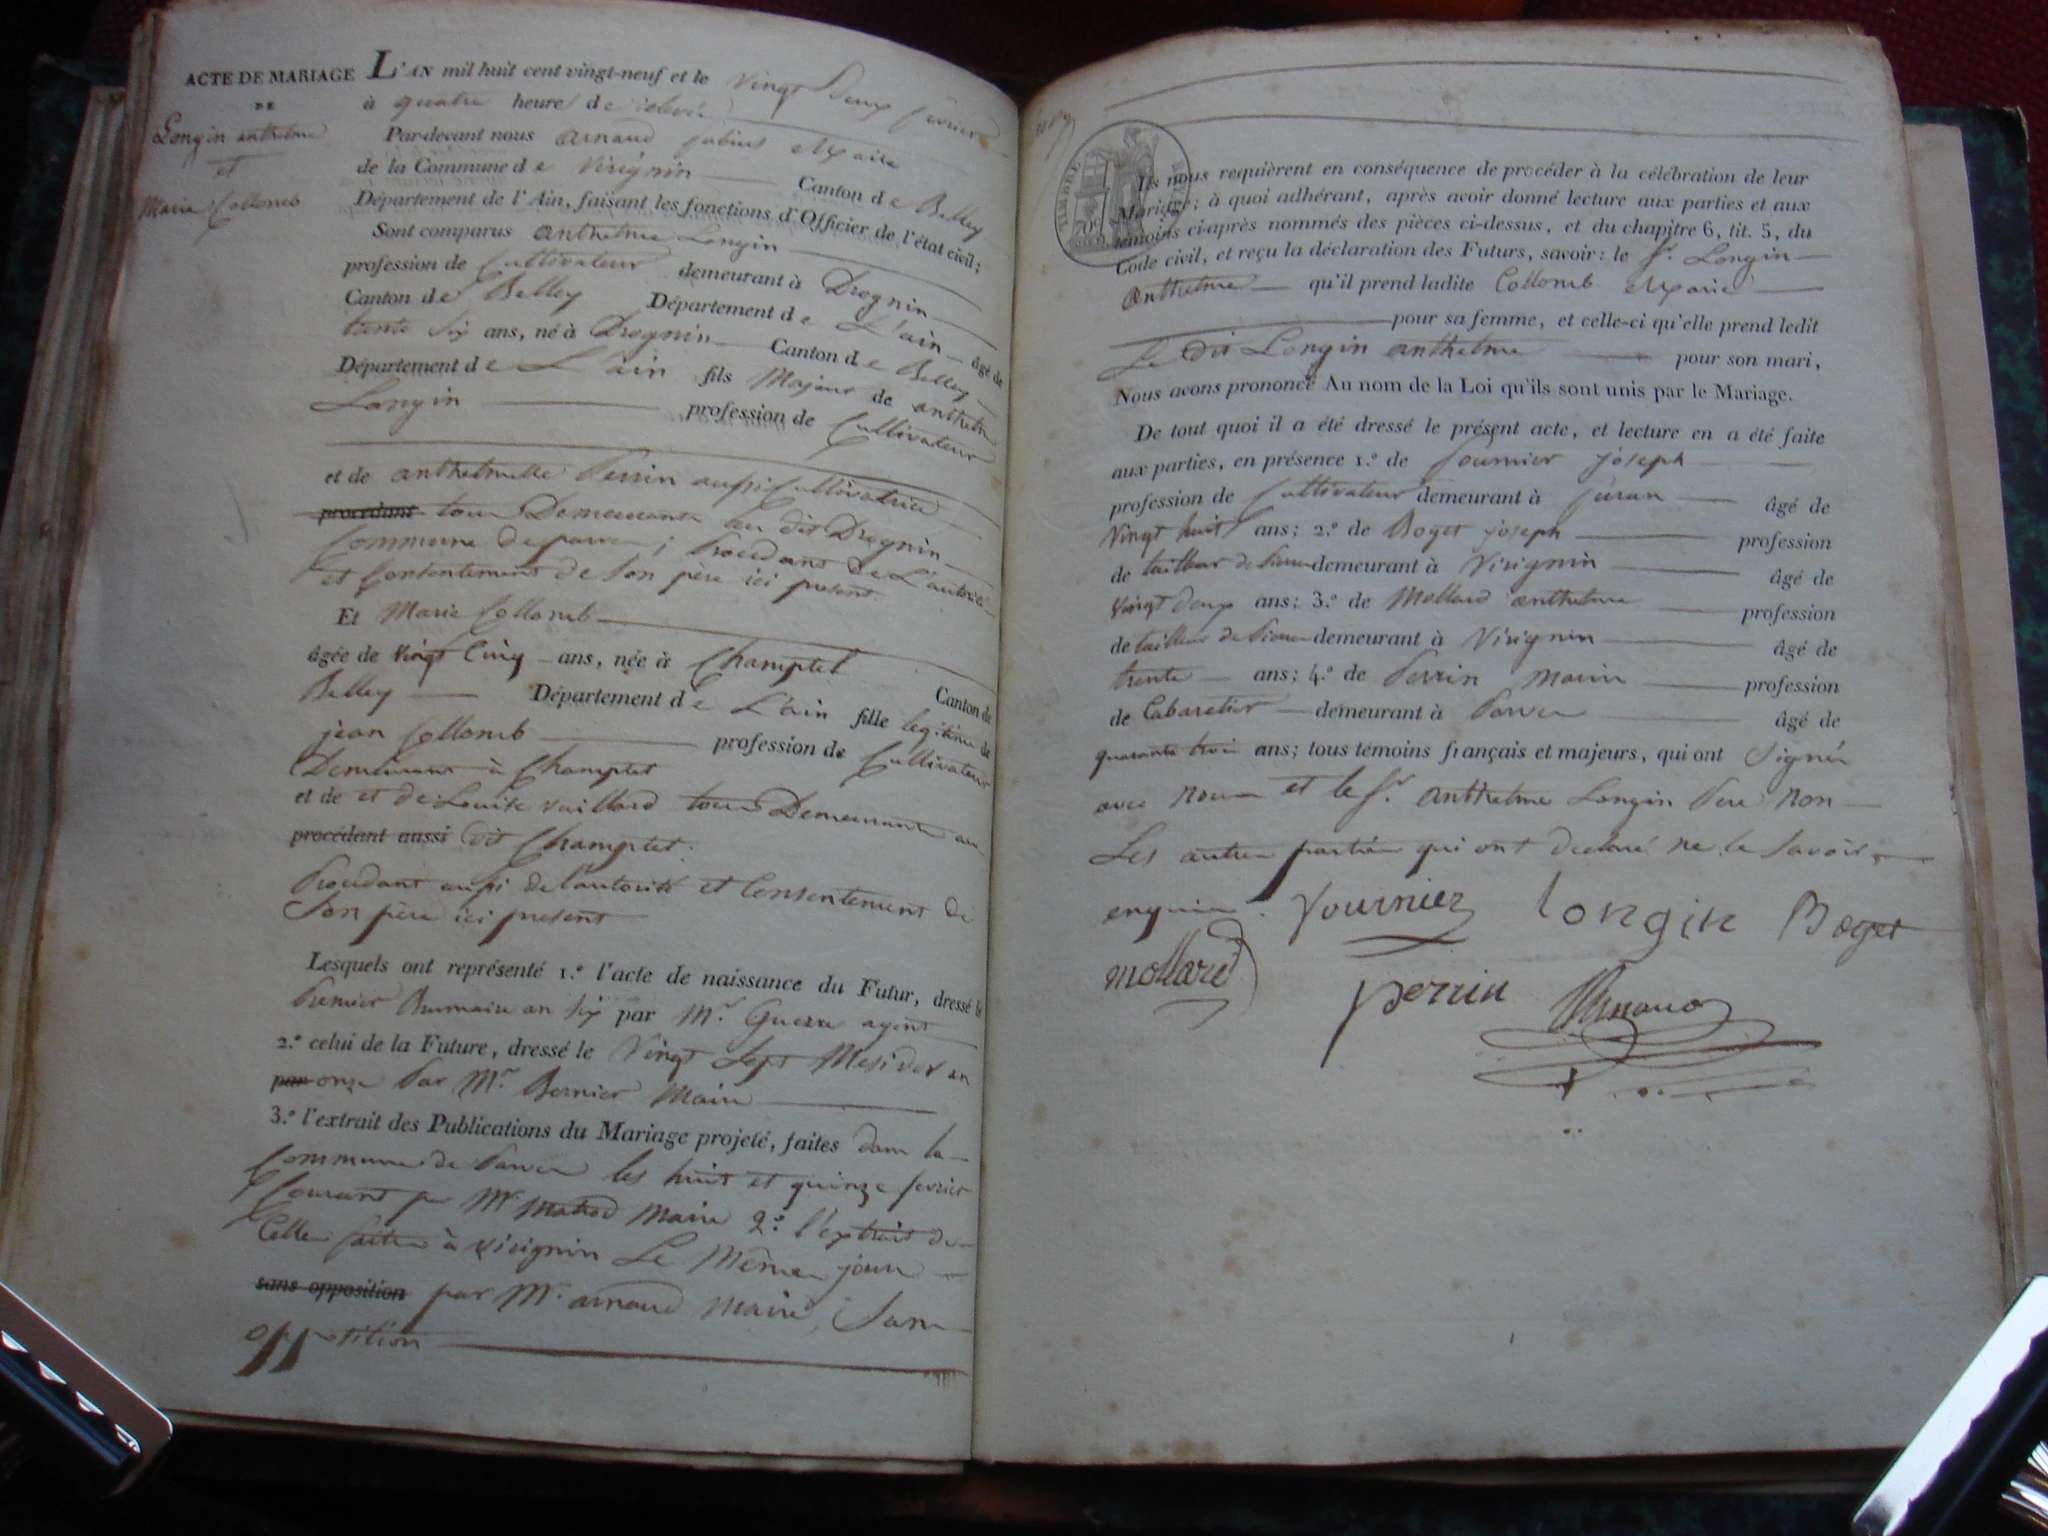 ACTE DE MARIAGE
DE
Longin anthelme
et
Marie Collomb
L'AN mil huit cent vingt-neuf et le vingt deux fevrier
à quatre heures de relevée
Par-devant nous arnaud Maire
de la Commune de Virignin Canton de Belley
Département de l'Ain, faisant les fonctions d'Officier de l'état civil;
Sont comparus anthelme Longin
profession de Cultivateur demeurant à Drognin
Canton de Belley Département de L'ain âgé de
trente six ans, né à Drognin Canton de Belley
Département de L'ain fils Majeur de anthelme
Longin profession de Cultivateur
et de anthelmette Perrin aussi Cultivatrice
procédant tous Demeurants au dit Drognin
Commune de parves; Procédant de L'autorité
et Consentement de Son père ici present
Et Marie Collomb
âgée de vingt Cinq ans, née à Champtel Canton de
Belley Département de L'ain fille legitime de
jean Collomb profession de Cultivateur
Demeurant à Champtel
et de et de Louise vuillard tous Demeurants au
procédant aussi dit Champtel.
Procedant aussi de l'autorité et Consentement de
Son père ici present
Lesquels ont représenté 1.º l'acte de naissance du Futur, dressé le
Premier Brumaire an six par Mr. Guerre agent
2.º celui de la Future, dressé le Vingt Sept Mesidor an
par onze Par Mr Bernier Maire
3.º l'extrait des Publications du Mariage projeté, faites dans la
Commune de Parves les huit et quinze fevrier
Courant par Mr Maire 2.º l'extrait de
Celles faites à virignin Le Même jour
sans opposition par Mr. arnaud Maire, Sans
opposition
TIMBRE
Ils nous requièrent en conséquence de procéder à la célébration de leur
Mariage; à quoi adhérant, après avoir donné lecture aux parties et aux
témoins ci-après nommés des pièces ci-dessus, et du chapitre 6, tit. 5, du
Code civil, et reçu la déclaration des Futurs, savoir: le Sr. Longin
Anthelme qu'il prend ladite Collomb Marie
pour sa femme, et celle-ci qu'elle prend ledit
Le dit Longin anthelme pour son mari,
Nous avons prononcé Au nom de la Loi qu'ils sont unis par le Mariage.
De tout quoi il a été dressé le présent acte, et lecture en a été faite
aux parties, en présence 1.º de fournier joseph
profession de Cultivateur demeurant à âgé de
Vingt huit ans; 2.º de Boget joseph profession
de tailleur de Pierre demeurant à Virignin âgé de
vingt deux ans; 3.º de Mollard anthelme profession
de tailleur de Pierre demeurant à Virignin âgé de
trente ans; 4.º de Perrin Marin profession
de Cabaretier demeurant à Parves âgé de
quarante trois ans; tous témoins français et majeurs, qui ont Signés
avec Nous et le Sr. anthelme Longin Pere Non
Les autres parties qui ont declaré ne le Savoir
enquis. fournier Longin Boget
mollard
perrin Arnaud